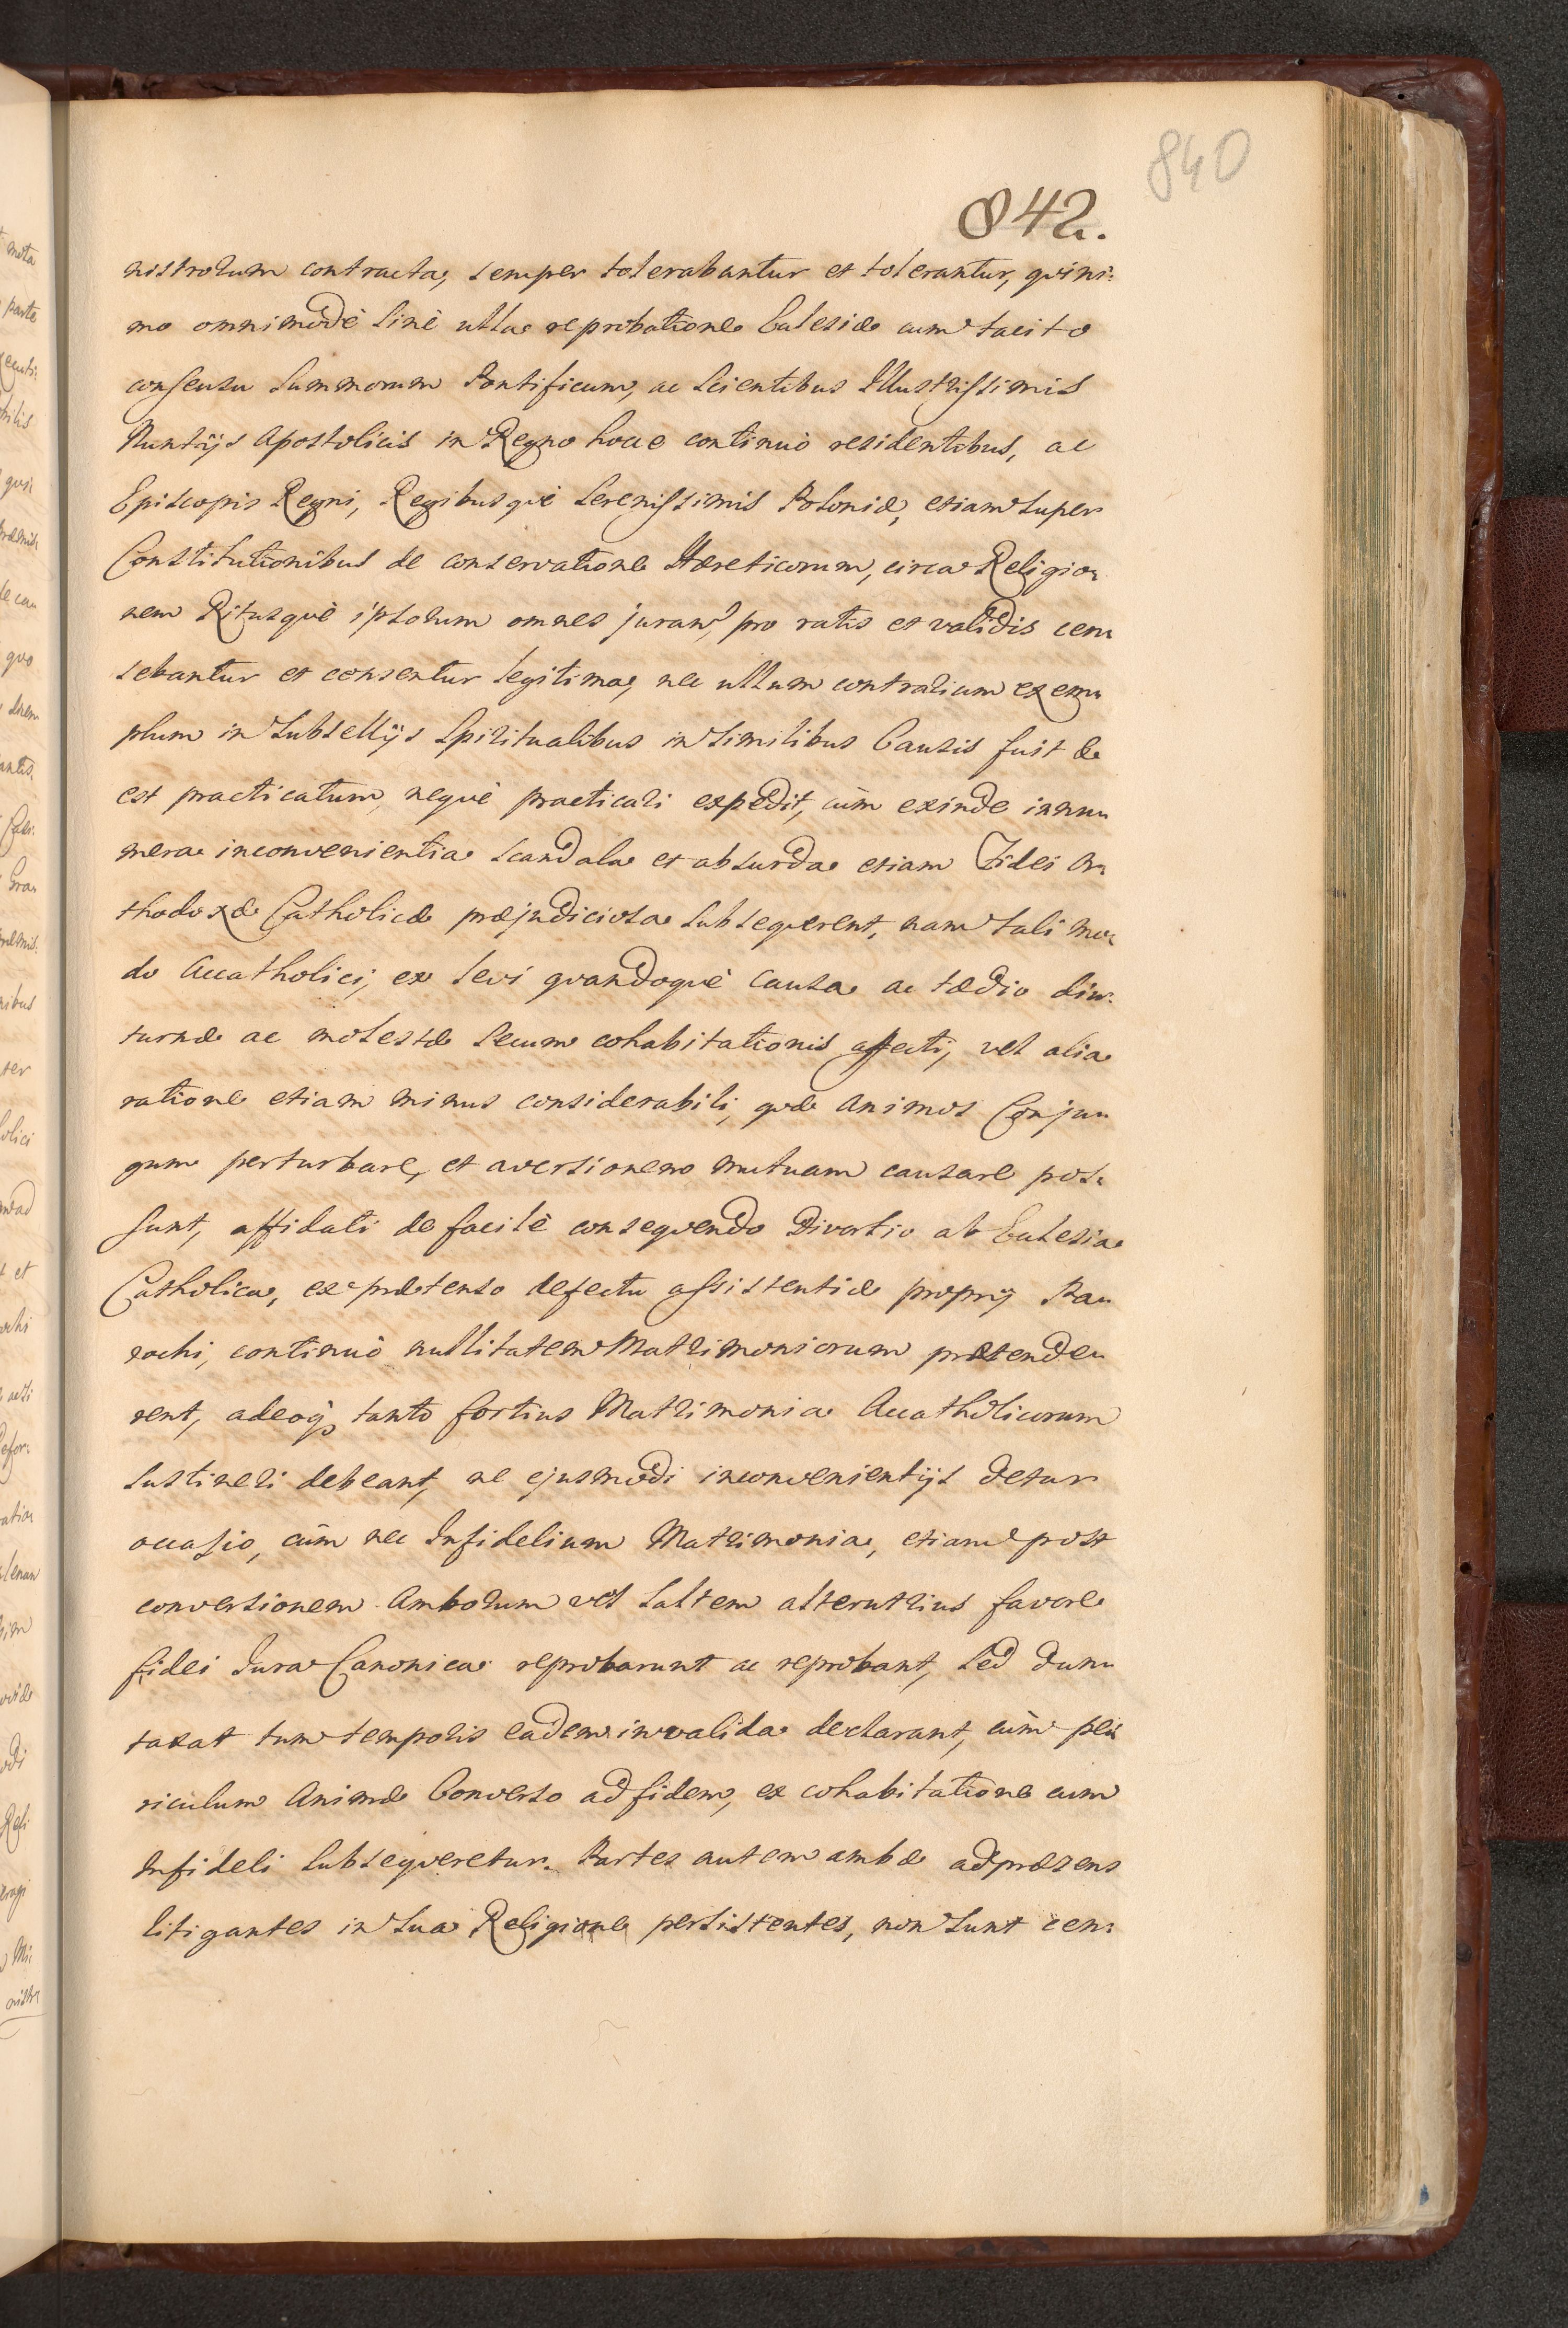 840
842.
nistrorum contracta, semper tolerabantur et tolerantur, quini:
mo omnimodè sinè ulla reprobatione Eclesiæ cum tacito
consensu Summorum Pontificum, ac Scientibus Illustrissimis
Nuntijs Apostolicis in Regno hocce continuò residentibus, ac
Episcopis Regni, Regibusquè Serenissimis Poloniæ, etiam super
Constitutionibus de conservatione Hæreticorum, circa Religio:
nem Ritusquè ipsorum omnes juran', pro ratis et validis cen:
sebantur et censentur legitima, nec ullum contrarium exem:
plum in Subsellijs Spiritualibus in similibus Causis fuit &
est practicatum, nequè practicari expedit, cùm exinde innu:
mera inconvenientia scandala et absurda etiam Fidei Or:
thodoxæ Catholicæ præjudiciosa subsequerent, nam tali mo:
do Accatholici, ex levi quandoquè causa ac tædio diu:
turnæ ac molestæ secum cohabitationis affecti, vel alia
ratione etiam minus considerabili, quæ animos Conju:
gum perturbare, et aversionem mutuam causare pos:
sunt, affidati de facilè consequendo Divortio ab Eclesia
Catholica, ex prætenso defectu assistentiæ proprij Pa:
rochi, continuò nullitatem Matrimoniorum prætende:
rent, adeoq; tanto fortius Matrimonia Accatholicorum
sustineri debeant, ne ejusmodi inconvenientijs detur
occasio, cùm nec Infidelium Matrimonia, etiam post
conversionem Amborum vel saltem alterutrius favore
fidei Jura Canonica reprobarunt ac reprobant, sed dun:
taxat tum temporis eadem invalida declarant, cùm pe:
riculum Animæ Converso ad fidem, ex cohabitatione cum
Infideli subsequeretur. Partes autem ambæ ad præsens
litigantes in sua Religione persistentes, non sunt cen: